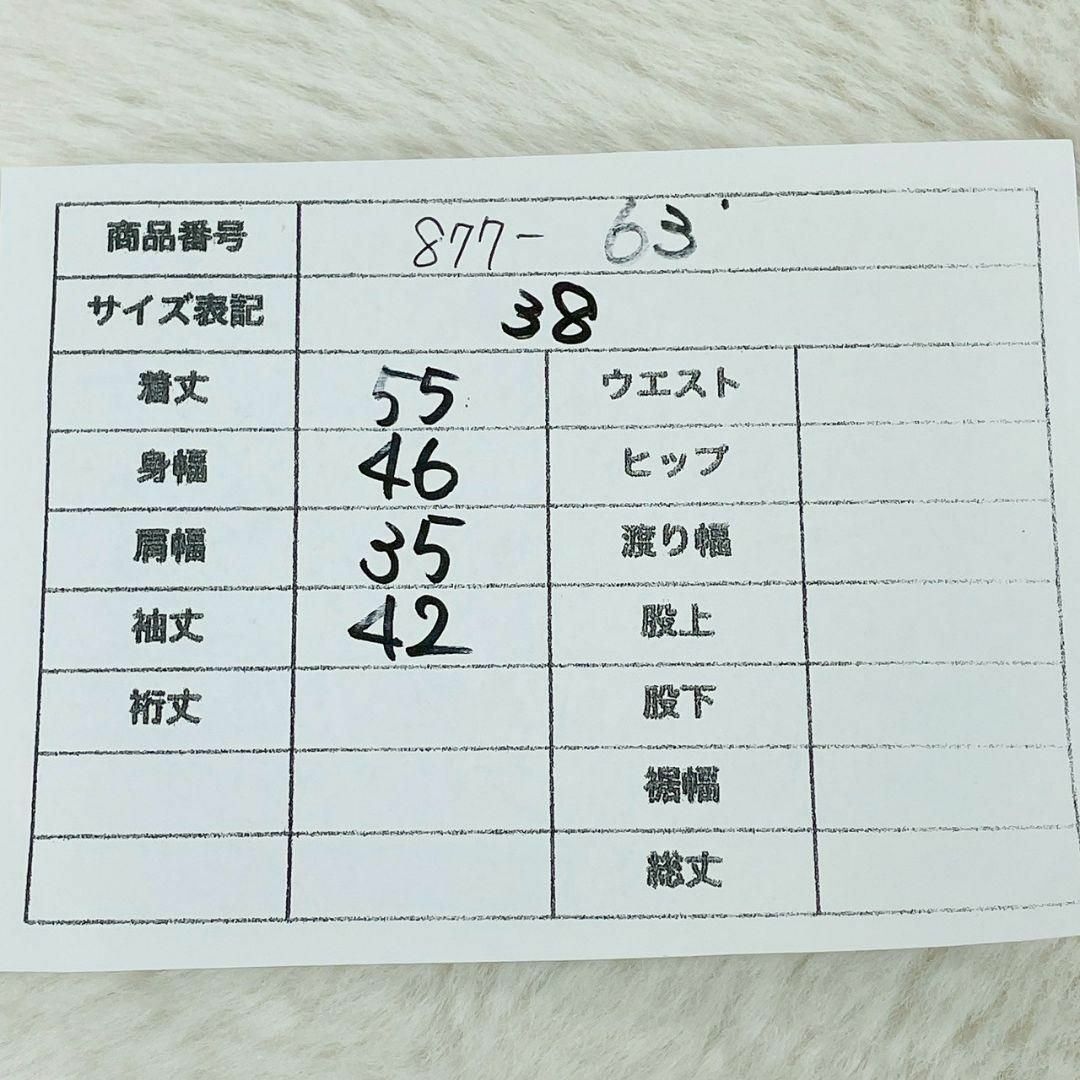 商品番号 877-63
サイズ表記 38
着丈 55 ウエスト
身幅 46 ヒップ
肩幅 35 渡り幅
袖丈 42 股上
裄丈 股下
裾幅
総丈